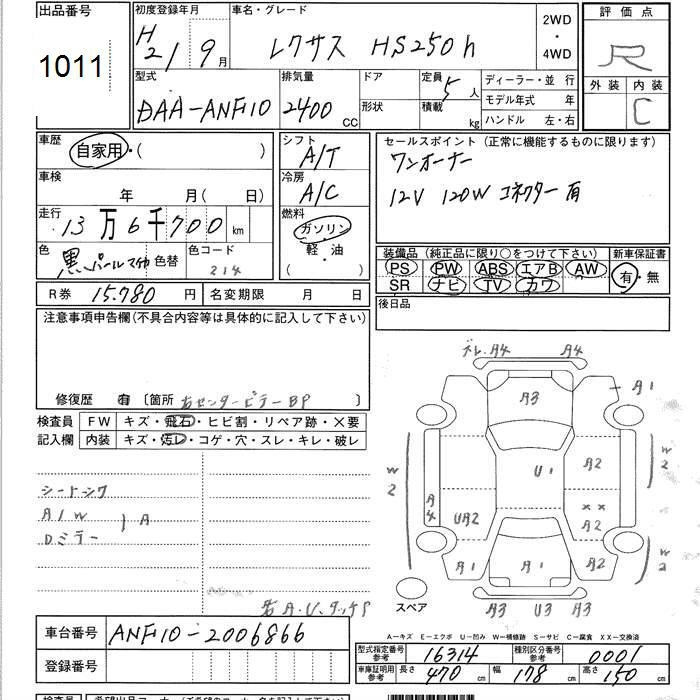 出品番号
1011
初度登録年月
H21 9月
車名・グレード
レクサス HS250h
2WD
・
4WD
評価点
R
外装 内装
C
型式
DAA-ANF10
排気量
2400 CC
ドア
形状
定員 5人
積載 kg
ディーラー・並 行
モデル年式 年
ハンドル 左・右
車歴
自家用・( )
車検
年 月( 日)
走行
13万6千700 km
色
黒パールマイカ 色替
色コード
214
シフト
A/T
冷房
A/C
燃料
ガソリン
・
軽・油
( )
セールスポイント (正常に機能するものに限ります)
ワンオーナー
12V 120W コネクター 有
装備品 (純正品に限り○をつけて下さい) 新車保証書
PS PW ABS エアB AW
SR ナビ TV カワ
有・無
R券 15.780 円 名変期限 月 日
後日品
注意事項申告欄(不具合内容等は具体的に記入して下さい)
修復歴 有 [箇所 右センターピラーBP ]
検査員 FW キズ・飛石・ヒビ割・リペア跡・×要
記入欄 内装 キズ・汚レ・コゲ・穴・スレ・キレ・破レ
シートシワ
A/W
Dミラー
A
ズレ.A4 A4
A3
A1
U1 A2
W2 W2
A4
UA2
××
A2
A1 A1 A2
W2
A3 U3 A3
スペア
A−キズ E−エクボ U−凹み W−補修跡 S−サビ C−腐食 XX−交換済
車台番号 ANF10-2006866
登録番号
型式指定番号 参考 16314 種別区分番号 参考 0001
車庫証明用 参考 長さ 470 cm 幅 178 cm 高さ 150 cm